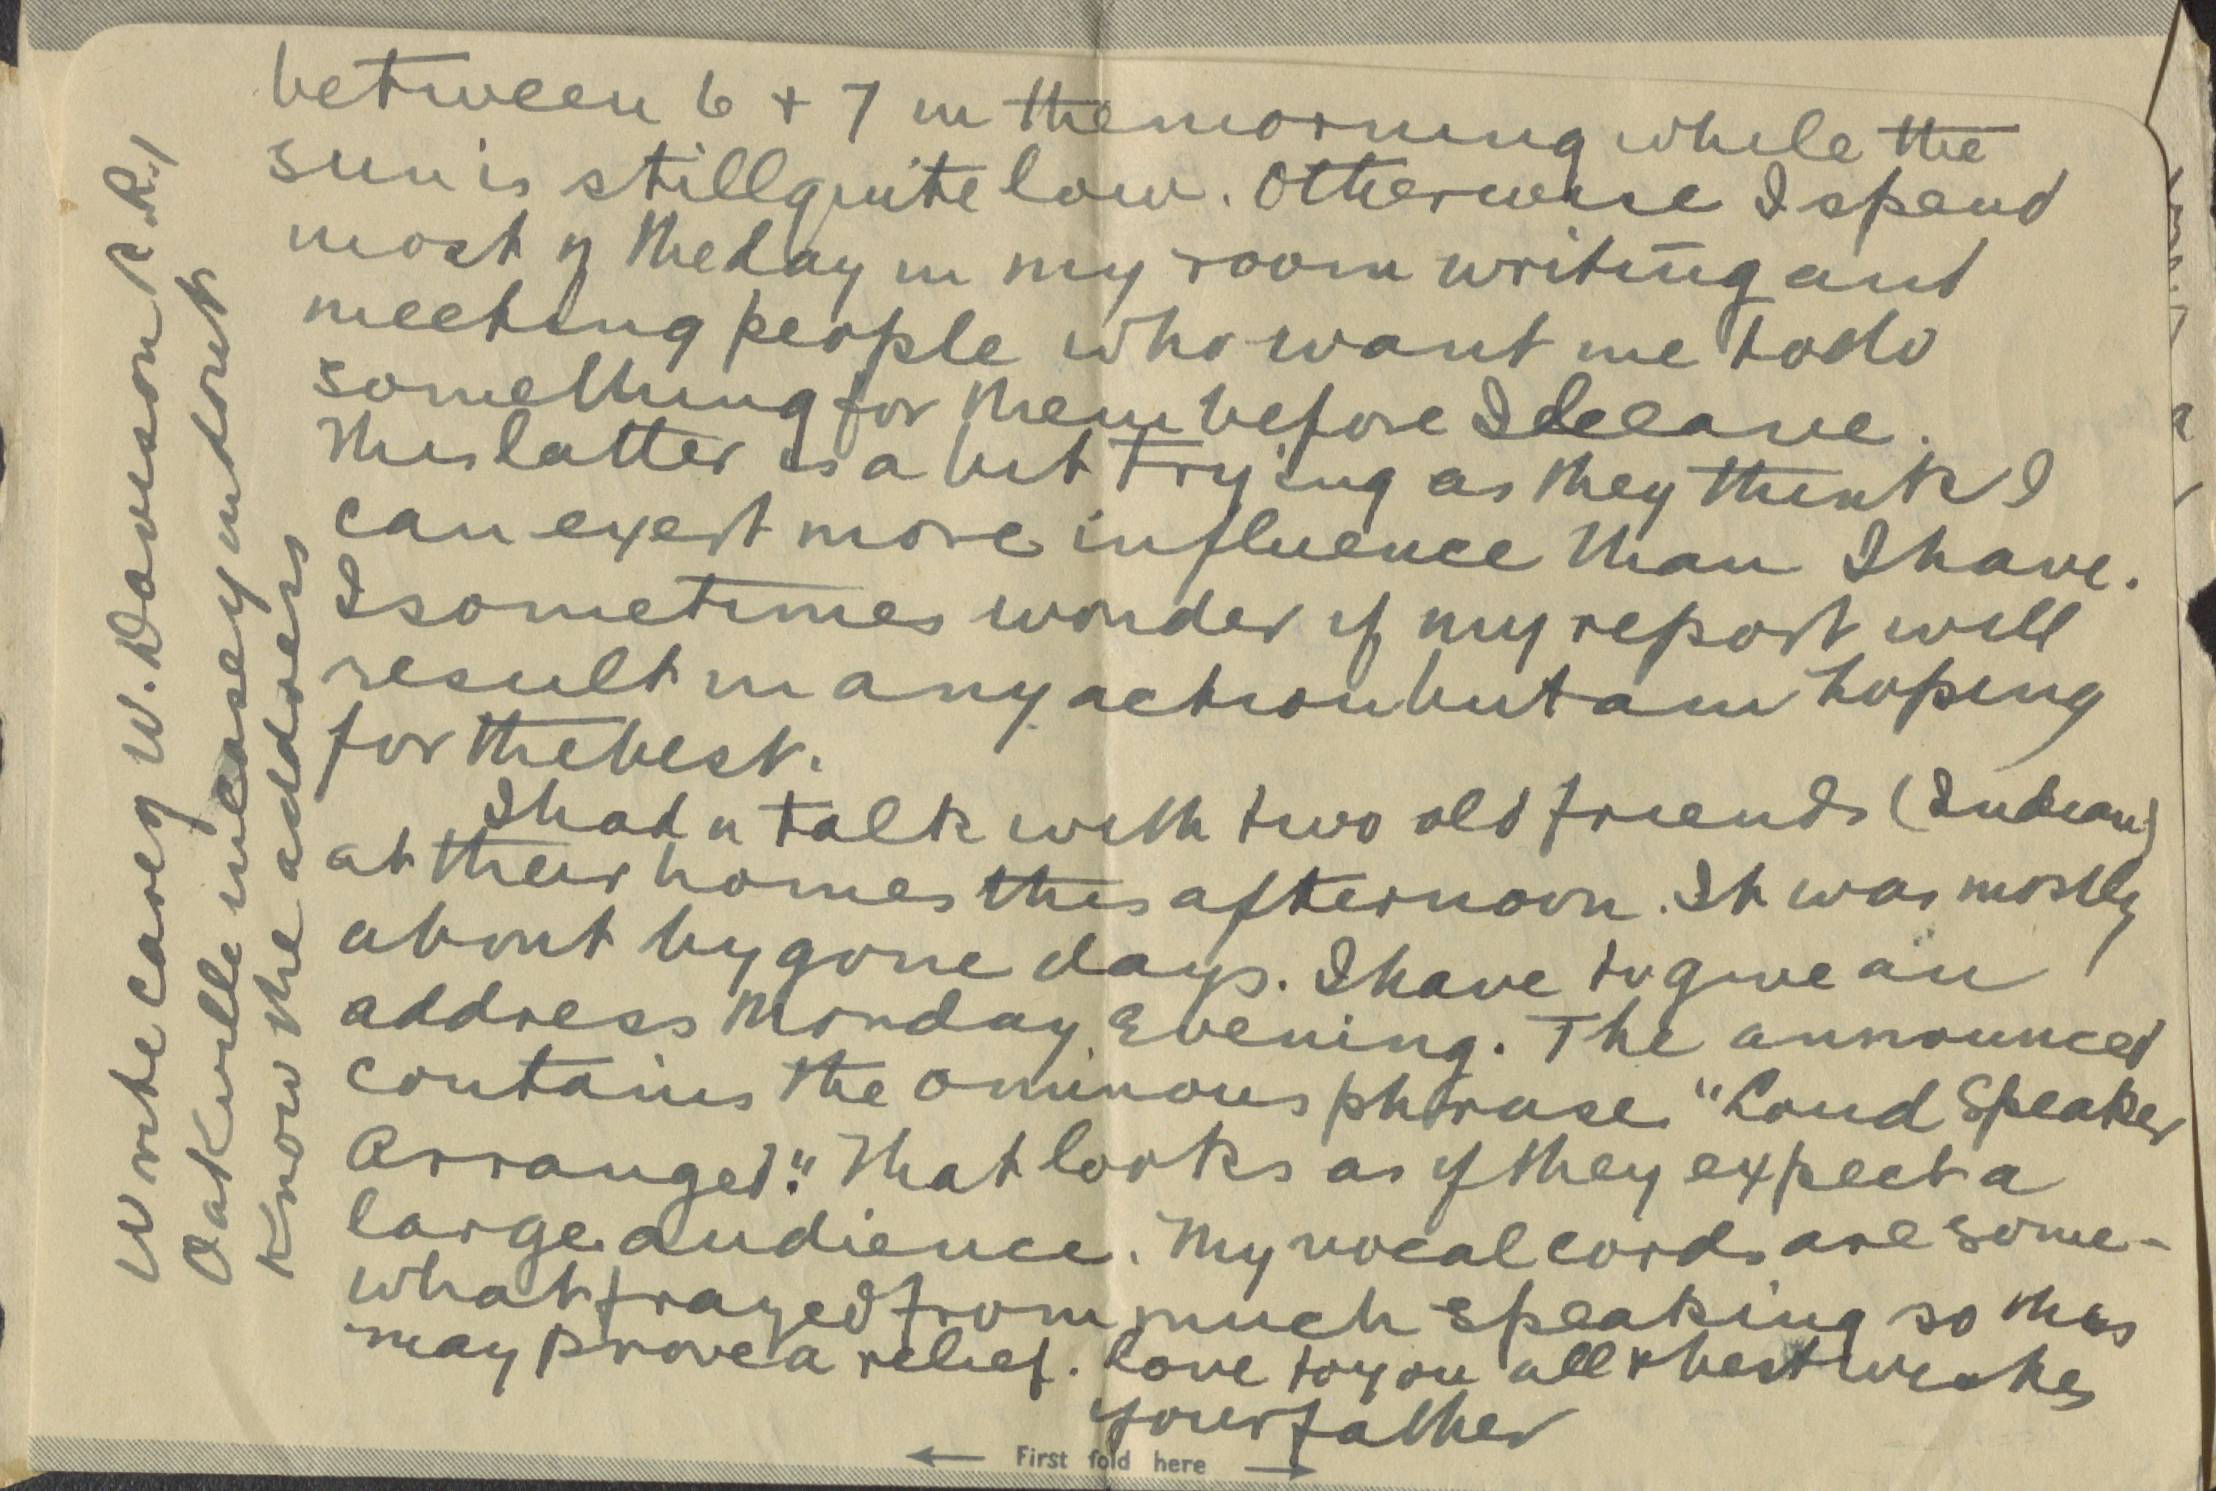 between 6 + 7 in the morning while the
sun is still quite low. Otherwise I spend
most of the day in my room writing and
meeting people who want me to do
something for them before I leave.
This latter is a bit trying as they think I
can exert more influence than I have.
I sometimes wonder if my report will
result in any action but am hoping
for the best.
I had a talk with two old friends (Indian)
at their homes this afternoon. It was mostly
about bygone days. I have to give an
address Monday Evening. The announced
contains the ominous phrase "Loud Speaker
Arranged". That looks as if they expect a
large audience. My vocal cords are some-
what frayed from much speaking so this
may prove a relief. Love to you all & best wishes
your father
First fold here
Wrote Carey W. Davison R.R.1
Oakville in case you don't
know the address